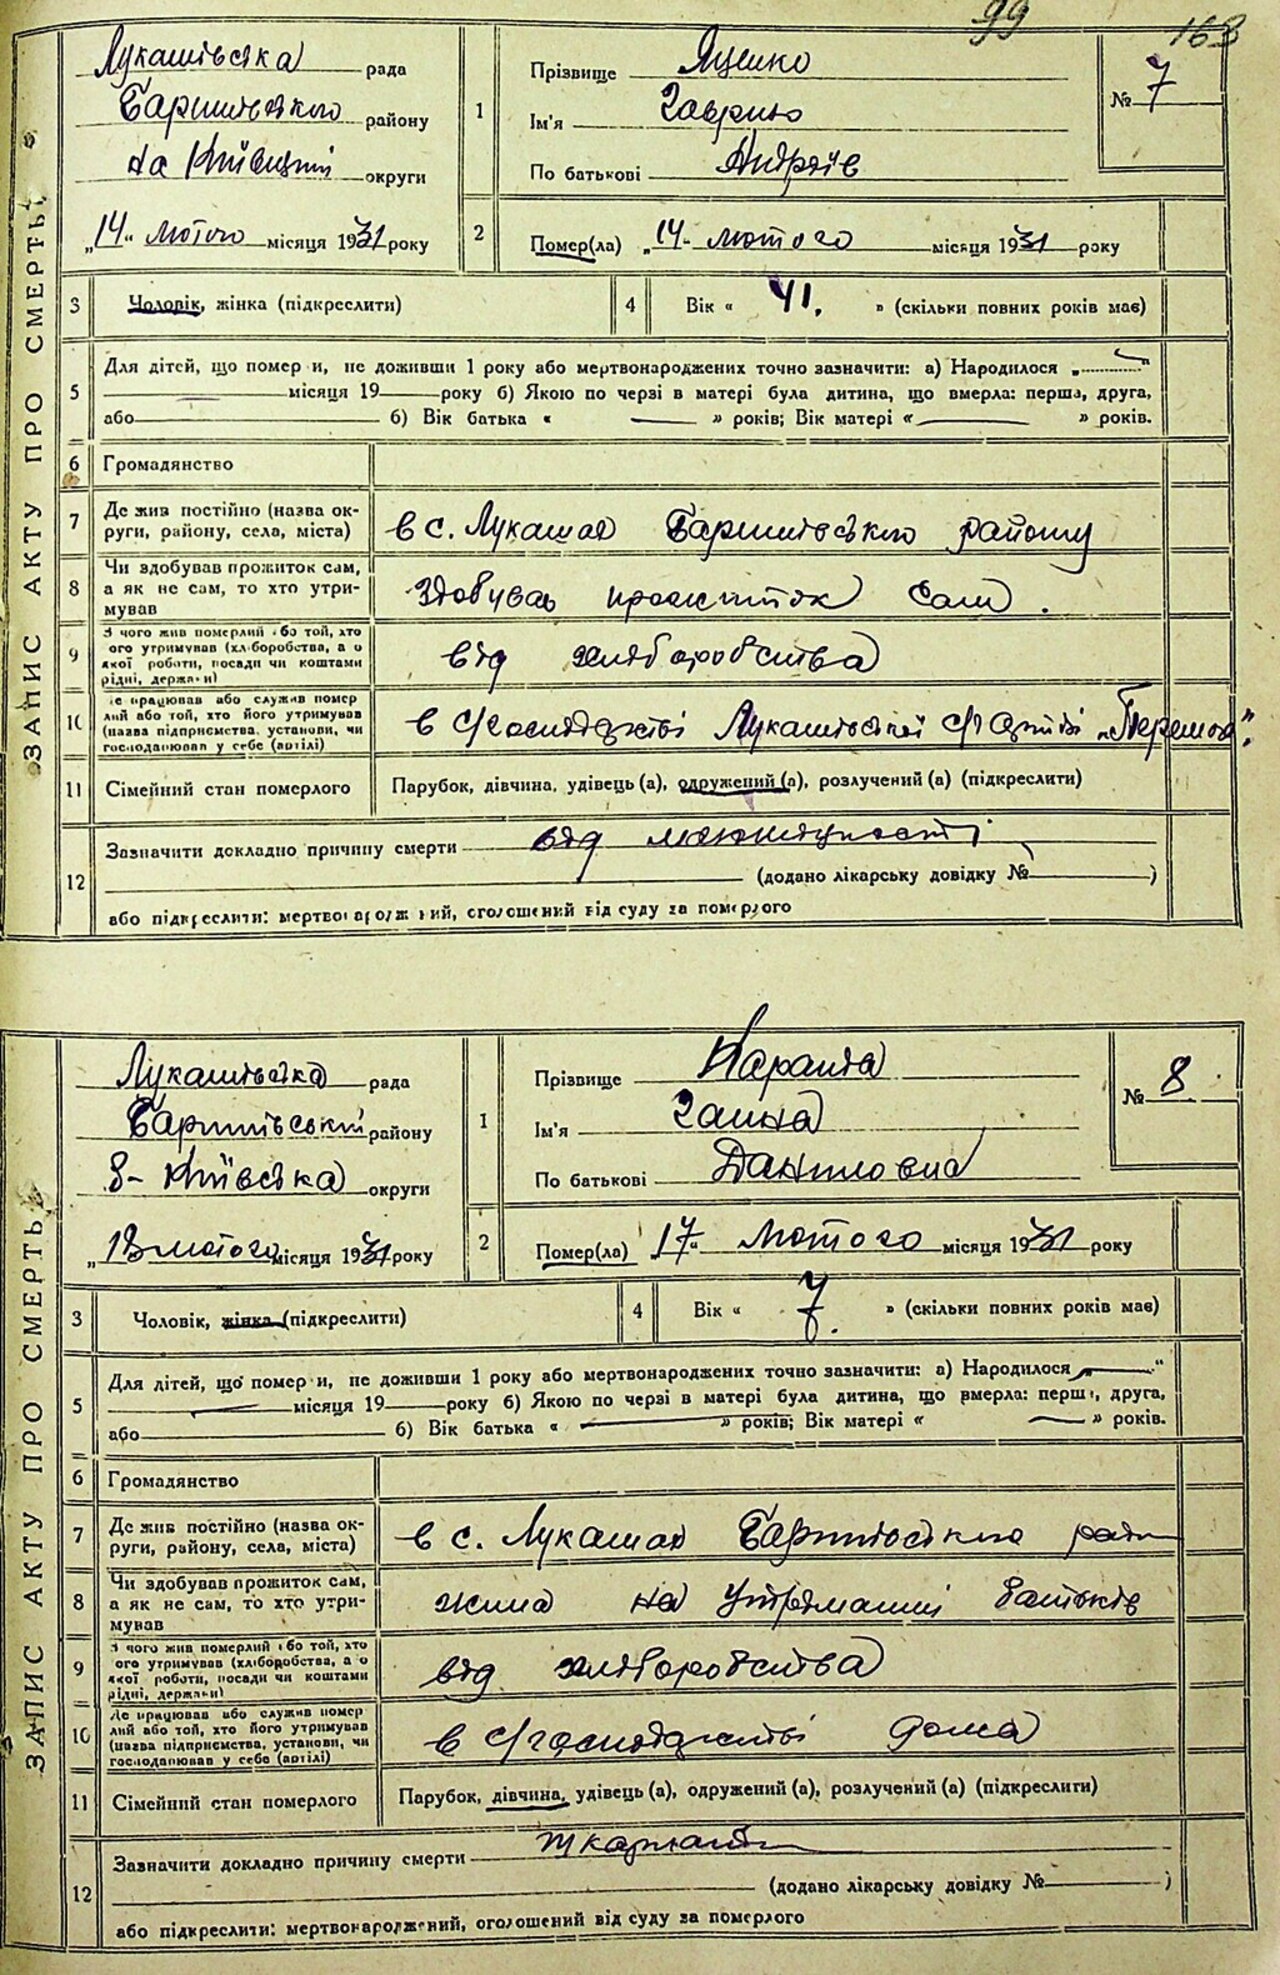 99 163
ЗАПИС АКТУ ПРО СМЕРТЬ
Лукашівська рада
Баришівського району
на Київщині округи
„14“ лютого місяця 1931 року
1
Прізвище Яценко
Ім'я Гаврило
По батькові Андріїв
№ 7
2
Помер(ла) „14“ лютого місяця 1931 року
3 Чоловік, жінка (підкреслити)
4 Вік « 41. » (скільки повних років має)
5
Для дітей, що помер и, не доживши 1 року або мертвонароджених точно зазначити: а) Народилося „ “
місяця 19 року б) Якою по черзі в матері була дитина, що вмерла: перша, друга,
або б) Вік батька « » років; Вік матері « » років.
6 Громадянство
7
Де жив постійно (назва ок-
руги, району, села, міста)
в с. Лукашах Баришівського району
8
Чи здобував прожиток сам,
а як не сам, то хто утри-
мував
Здобував прожиток сам.
9
З чого жив померлий або той, хто
ого утримував (хліборобства, а о
якої роботи, посади чи коштами
рідні, держави)
від хліборобства
10
е працював або служив помер
лий або той, хто його утримував
(назва підприємства, установи, чи
господарював у себе (артілі)
в с/господарстві Лукашівської с/г артілі „Перемога“.
11 Сімейний стан померлого
Парубок, дівчина, удівець (а), одружений (а), розлучений (а) (підкреслити)
12
Зазначити докладно причину смерти від
(додано лікарську довідку № )
або підкреслити: мертвонароджений, оголошений від суду за померлого
ЗАПИС АКТУ ПРО СМЕРТЬ
Лукашівська рада
Баришівський району
Київська округи
„18 лютого місяця 1931 року
1
Прізвище
Ім'я Ганна
По батькові Даниловна
№ 8
2
Помер(ла) 17“ лютого місяця 1931 року
3 Чоловік, жінка (підкреслити)
4 Вік « 7. » (скільки повних років має)
5
Для дітей, що помер и, не доживши 1 року або мертвонароджених точно зазначити: а) Народилося „ “
місяця 19 року б) Якою по черзі в матері була дитина, що вмерла: перша, друга,
або б) Вік батька « » років; Вік матері « » років.
6 Громадянство
7
Де жив постійно (назва ок-
руги, району, села, міста)
в с. Лукашах Баришівського райн
8
Чи здобував прожиток сам,
а як не сам, то хто утри-
мував
жила на утриманні батьків
9
З чого жив померлий або той, хто
ого утримував (хліборобства, а о
якої роботи, посади чи коштами
рідні, держави)
від хліборобства
10
Де працював або служив помер
лий або той, хто його утримував
(назва підприємства, установи, чи
господарював у себе (артілі)
в с/господарстві дома
11 Сімейний стан померлого
Парубок, дівчина, удівець (а), одружений (а), розлучений (а) (підкреслити)
12
Зазначити докладно причину смерти шкарлатин
(додано лікарську довідку № )
або підкреслити: мертвонароджений, оголошений від суду за померлого